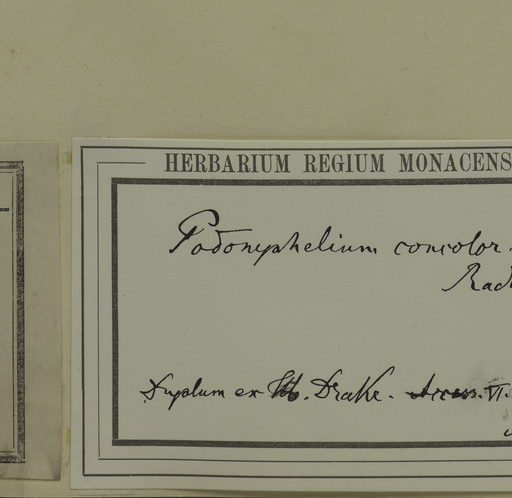 HERBARIUM REGIUM MONACENS
Podonephelium concolor
Radl
Duplum ex Hb. Drake. Access. VI.